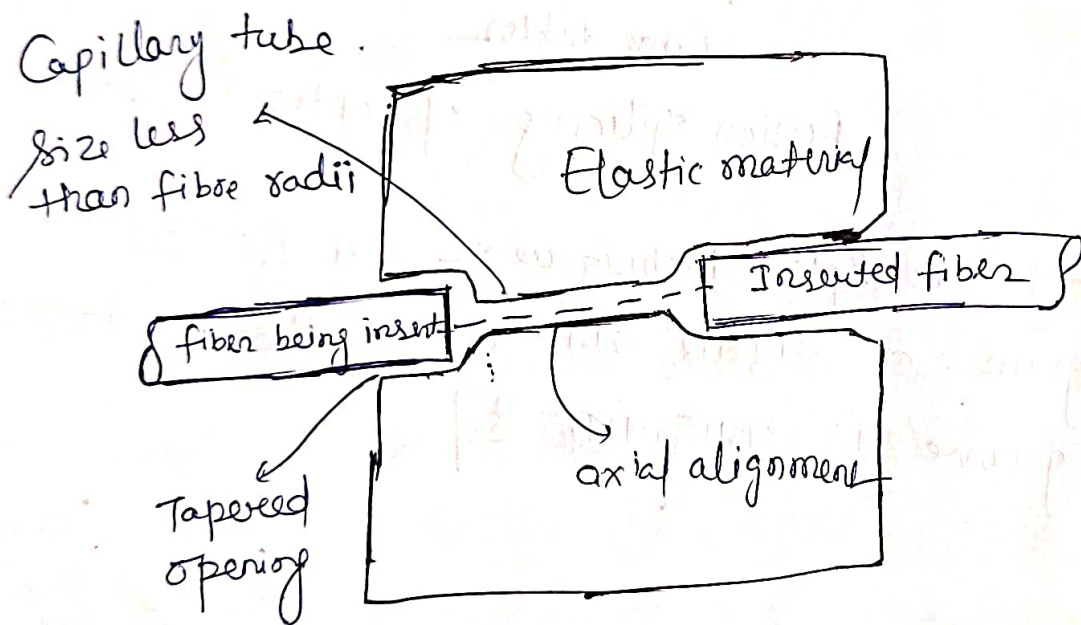 Capillary tube.
size less
than fibre radii
Elastic material
Inserted fiber
fiber being insert
axial alignment
Tapered
opening